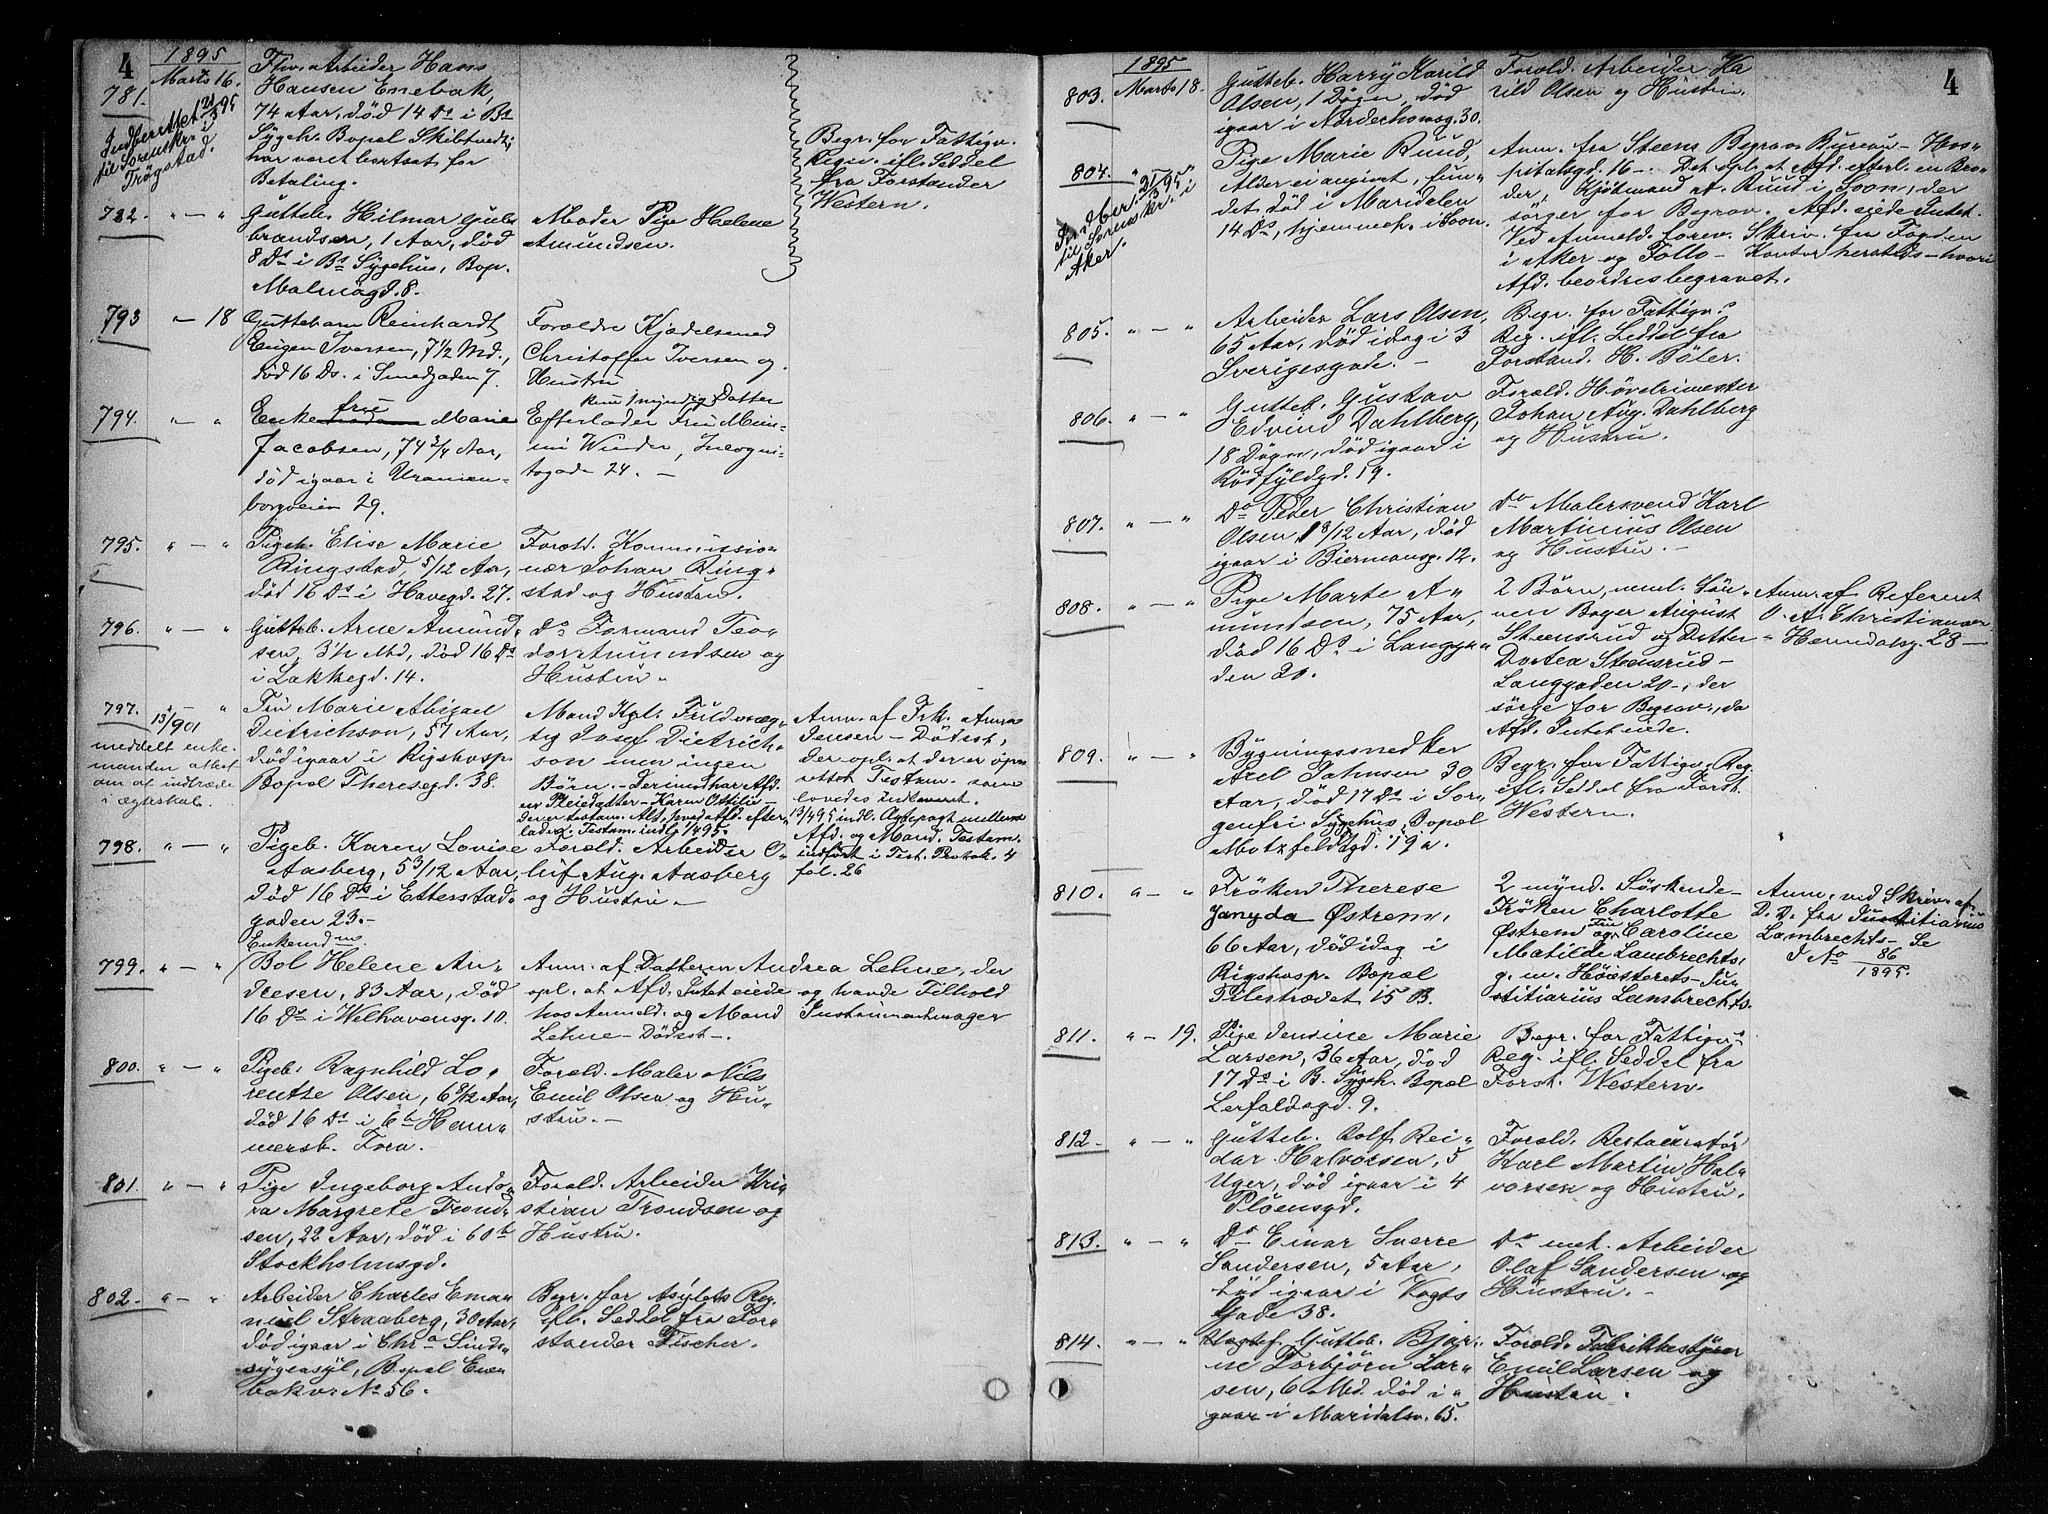 4
1895
Marts 16.
781.
Indberettet 21/3 95
til Sorenskr. i
Trøgstad.
Fhv. Arbeider Hans
Hansen Enebak,
74 Aar, død 14 Ds i Bs
Sygeh. Bopæl Skibtvedt;
har været bortsat for
Betaling.
Begr. for Fattigv.
Regn. ifl. Seddel
fra Forstander
Western.
782.
" — "
Gutteb. Hilmar Gul-
brandsen, 1 Aar, død
8 Ds i Bs Sygehus, Bop.
Malmøgd. 8.
Moder Pige Helene
Amundsen.
793
" — 18
Guttebarn Reinhardt
Eugen Iversen, 7 1/2 Md.,
død 16 Ds. i Smedgaden 7.
Forældre Kjedelsmed
Christoffer Iversen og
Hustru
794.
" — "
Enkefrue Marie
Jacobsen, 74 3/4 Aar,
død igaar i Uranien-
borgveien 29.
kun 1 myndig Datter
Efterlader Fru Mim-
mi Winder, Incogni-
togade 24. —
795.
" — "
Pigeb. Elise Marie
Ringstad, 5/12 Aar,
død 16 Ds i Havegd. 27.
Foræld. Kommissio-
nær Johan Ring-
stad og Hustru.
796.
" — "
Gutteb. Arne Amund-
sen, 3 1/2 Md, død 16 Ds
i Lakkegd. 14.
Ds Formand Teo-
dor Amundsen og
Hustru "
797.
" — "
13/ 901
meddelt enke-
manden attest
om at indtræde
i ægteskab.
Fru Marie Abigael
Dietrichson, 57 Aar,
død igaar i Rigshosp.
Bopæl Theresegd. 38.
Mand Kgl. Fuldmæg-
tig Josef Dietrich-
son men ingen
Børn. — Derimod har Afd.
en Pleiedatter — Karen Ottilie —
der er testam. Alt, hvad Afd. efter-
lader. Testam. indl. 1/4 95.
Anm. af Frk. Anna
Jensen — Dødsst.,
der opl. at der er opr-
ettet Testam. som
lovedes indleveret.
13/4 95 indl. Ægtepagt mellem
Afd. og Mand. Testam.
indført i Test. Protok. 4
fol. 26
798.
" — "
Pigeb. Karen Lovise
Aasberg, 5 3/12 Aar,
død 16 Ds i Etterstad-
gaden 23. —
Foræld. Arbeider O-
luf Aug. Aasberg
og Hustru —
799.
" — "
Enkemdm.
Bol Helene An-
dresen, 83 Aar, død
16 Ds i Welhavensg. 10.
Anm. af Datteren Andrea Lehne, der
opl. at Afd. Intet eiede og havde Tilhold
hos Anmeld. og Mand Instrumentmager
Lehne — Dødsst —.
800.
" — "
Pigeb. Ragnhild Lo-
rentze Olsen, 6 8/12 Aar,
død 16 Ds i 6 b Ham-
mersb. Torv.
Foræld. Maler Nils
Emil Olsen og Hu-
stru. —
801.
" — "
Pige Ingeborg Ando-
ra Margrete Trond-
sen, 22 Aar, død i 60 b
Stockholmsgd.
Foræld. Arbeider Kri-
stian Trondsen og
Hustru.
802.
" — "
Arbeider Charles Ema-
nuel Straaberg, 30 Aar,
død igaar i Chr a Sinds-
sygeasyl, Bopæl Ene-
bakv. No 56.
Begr. for Asylets Reg.
ifl. Seddel fra For-
stander Fischer.
4
1895
803.
Marts 18.
Gutteb. Harry Harild
Olsen, 1 Døgn, død
igaar i Nordechousg. 30.
Foræld. Arbeider Ha-
rild Olsen og Hustru.
804.
" — "
Indber. 21/3 95
til Sorenskr. i
Aker.
Pige Marie Ruud,
Alder ei angivet, fun-
det død i Maridalen
14 Ds, hjemmeh. i Soon.
Anm. fra Steens Begrav. Bureau — Hos-
pitalsgd. 16 —. Det opl. at Afd. efterl. en Bro-
der, Kjøbmand A. Ruud i Soon, der
sørger for Begrav. Afd. eiede Intet.
Ved Anmeld. forev. Skriv. fra Fogden
i Aker og Follo — Kontor hersteds — hvori
Afd. beordres begravet.
805.
" — "
Arbeider Lars Olsen,
65 Aar, død idag i 3
Sverigesgade. —
Begr. for Fattigv.s
Reg. ifl. Seddel fra
Forstand. H. Bøler.
806.
" — "
Gutteb. Gustav
Edvind Dahlberg,
18 Døgn, død igaar i
Rødfyldgd. 19.
Foræld. Høvlerimester
Johan Aug. Dahlberg
og Hustru.
807.
" — "
Do Peder Christian
Olsen, 1 8/12 Aar, død
igaar i Biermansg. 12.
Do Malersvend Karl
Martinius Olsen
og Hustru. —
808.
" — "
Pige Marte A-
mundsen, 75 Aar,
død 16 Ds i Langga-
den 20.
2 Børn, neml. Søn-
nen Bager August
Steensrud og Datter
Dortea Steensrud —
Langgaden 20 —, der
sørge for Begrav., da
Afd. Intet eiede.
Anm. af Referent
O. A. Christiansen
— Henrdalsg. 28 —
809.
" — "
Bygningssnedker
Axel Johnsen 30
Aar, død 17 Ds i Sor-
genfri Sygehus, Bopæl
Motzfeldtsgd. 19 a.
Begr. for Fattigv. Reg.
ifl. Seddel fra Forst.
Western.
810.
" — "
Frøken Therese
Jangda Østrem,
66 Aar, død idag i
Rigshosp. Bopæl
Pilestrædet 15 B.
2 mynd. Søskende —
Frøken Charlotte
Østrem og Fru Caroline
Matilde Lambrechts,
g. m. Høiesterets-Ju-
stitiarius Lambrechts.
Anm. ved Skriv. af
D. D. fra Justitiarius
Lambrechts — Se
J No 86/1895.
811.
" — 19.
Pige Jensine Marie
Larsen, 36 Aar, død
17 Ds i B. Sygeh. Bopæl
Lerfaldsgd. 9.
Begr. for Fattigv.s
Reg. ifl. Seddel fra
Forst. Western.
812.
" — "
Gutteb. Rolf Rei-
dar Halvorsen, 5
Uger, død igaar i 4
Pløensgd.
Foræld. Restauratør
Karl Martin Hal-
vorsen og Hustru.
813.
" — "
Do Einar Sverre
Sandersen, 5 Aar,
død igaar i Vogts
Gade 38.
Do mek. Arbeider
Olaf Sandersen og
Hustru. —
814.
" — "
Uægtef. Gutteb. Bjar-
ne Torbjørn Lar-
sen, 6 Md. død i-
gaar i Maridalsv. 65.
Foræld. Fabrikbestyrer
Emil Larsen og
Hustru.